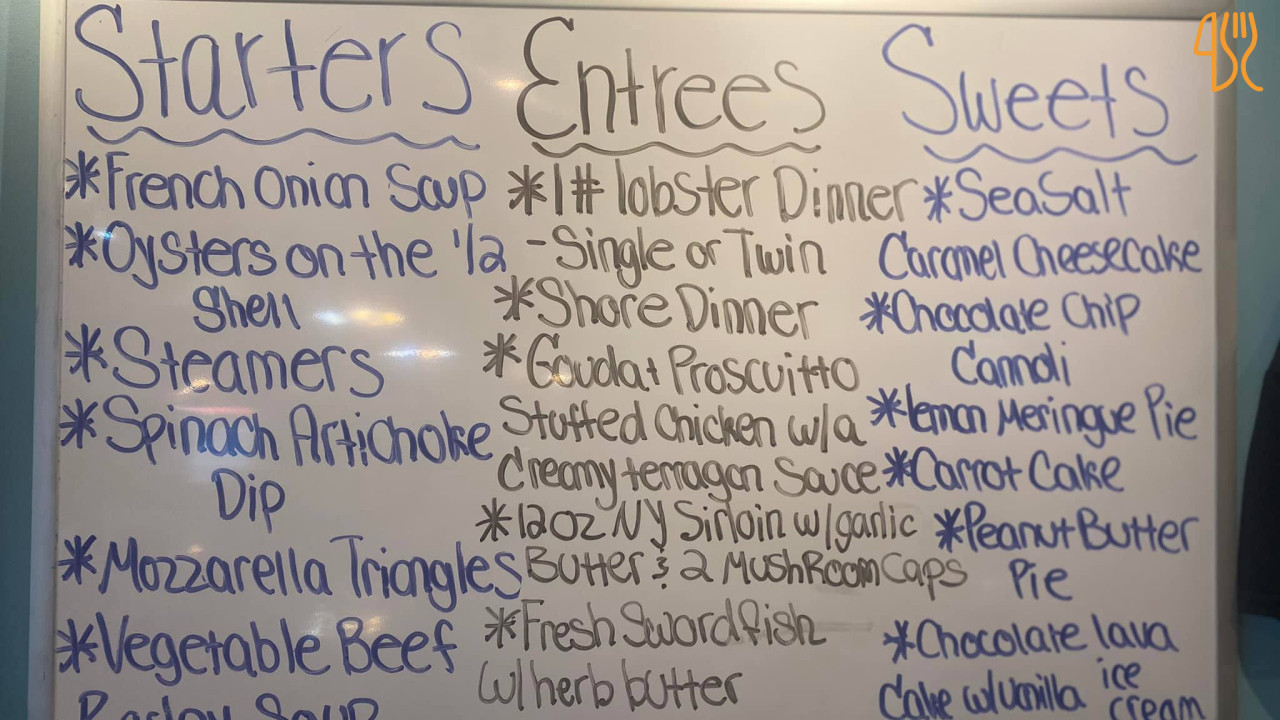 Starters
*French Onion Soup
*Oysters on the 1/2
Shell
*Steamers
*Spinach Artichoke
Dip
*Mozzarella Triangles
*Vegetable Beef
Barley Soup
Entrees
*1# lobster Dinner
-Single or Twin
*Shore Dinner
*Gouda + Proscuitto
Stuffed Chicken w/a
Creamy terragon Sauce
*12oz NY Sirloin w/garlic
Butter & 2 MushRoom Caps
*Fresh Swordfish
w/herb butter
Sweets
*SeaSalt
Caramel Cheesecake
*Chocolate Chip
Cannoli
*lemon Meringue Pie
*Carrot Cake
*Peanut Butter
Pie
*Chocolate lava
Cake w/vanilla ice
cream